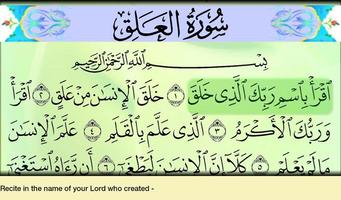 سُورَةُ الْعَلَقِ
بِسْمِ اللَّهِ الرَّحْمَٰنِ الرَّحِيمِ
اقْرَأْ بِاسْمِ رَبِّكَ الَّذِي خَلَقَ ١ خَلَقَ الْإِنسَانَ مِنْ عَلَقٍ ٢ اقْرَأْ
وَرَبُّكَ الْأَكْرَمُ ٣ الَّذِي عَلَّمَ بِالْقَلَمِ ٤ عَلَّمَ الْإِنسَانَ
مَا لَمْ يَعْلَمْ ٥ كَلَّا إِنَّ الْإِنسَانَ لَيَطْغَىٰ ٦ أَن رَّآهُ اسْتَغْنَىٰ
Recite in the name of your Lord who created -